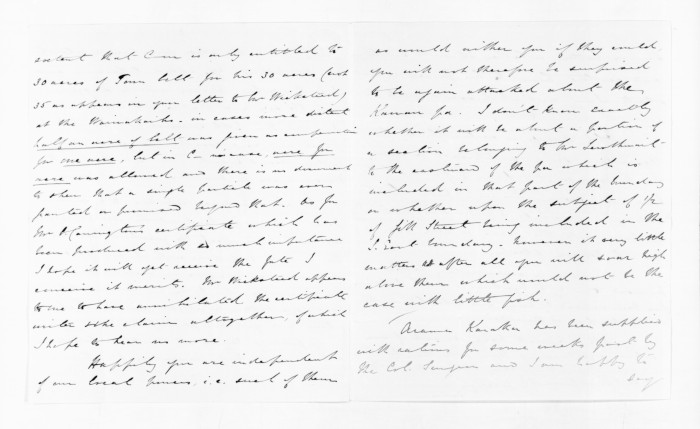 extent that C— is only entitled to
30 acres of Town belt for his 30 acres (not
35 as appears in your letter to Mr Wicksteed)
at the Waiwakaiho. in cases more distant
half an acre of belt was given as compensation
for one acre, but in C—'s case, acre for
acre was allowed and there is no document
to shew that a single particle was ever
granted or promised beyond that. As for
Mr O Carrington's certificate which has
been produced with so much importance
I hope it will yet receive the fate I
conceive it merits. Mr Wicksteed appears
to me to have annihilated the certificate
writer & the claim altogether, of which
I hope to hear no more.
Happily you are independent
of our local powers, i.e. such of them
as would wither you if they could
you will not therefore be surprised
to be again attacked about the
Kawau pa. I don't know exactly
whether it will be about a portion of
a section belonging to Mr
to the eastward of the pa which is
included in that part of the boundary
or whether upon the subject of
of Gill Street being included in the
boundary. however it very little
matters as after all you will soar high
above them which would not be the
case with little fish.
Karaka has been supplied
with rations for some weeks past by
the Col. Surgeon and I am happy to
say